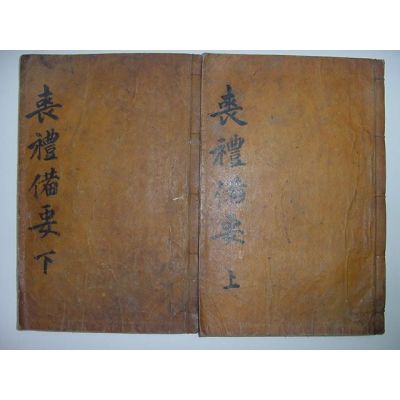 喪禮備要 上
喪禮備要 下